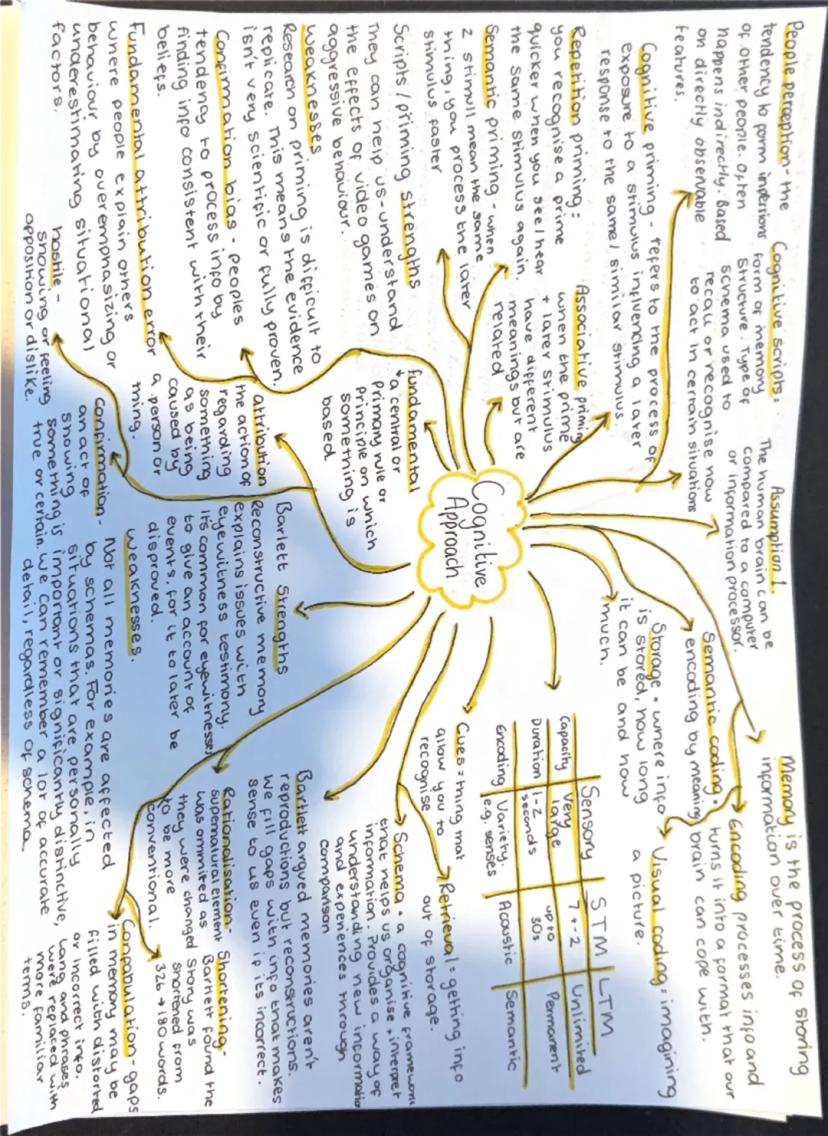 People perception - the
tendency to form impertions
of other people. Often
happens indirectly. Based
on directly observable
features.
Cognitive scripts:
form of memory
structure. Type of
schema used to
recall or recognise now
to act in certain situations
Assumption 1.
The human brain can be
compared to a computer
or information processor.
Memory is the process of storing
information over time.
Cognitive priming - refers to the process of
exposure to a stimulus influencing a later
response to the same/similar stimulus.
Semantic coding.
encoding by meaning
Encoding processes info and
turns it into a format that our
brain can cope with.
Storage. where info
is stored, how long
it can be and how
much.
Visual coding: imagining
a picture.
Repetition priming:
you recognise a prime
quicker when you see/hear
the same stimulus again.
Associative priming
when the prime
+ later stimulus
have different
meanings but are
related
Semantic priming - when
2 stimuli mean the same
thing, you process the later
stimulus faster
Cognitive
Approach
Sensory STM LTM
Capacity very large 7+-2 Unlimited
Duration 1-2 seconds up to 30s Permanent
Encoding Variety, e.g. senses Acoustic Semantic
Cues = thing that
allow you to
recognise
Retrieval = getting info
out of storage.
Scripts/priming strengths
They can help us - understand
the effects of video games on
aggressive behaviour.
Weaknesses
Research on priming is difficult to
replicate. This means the evidence
isn't very scientific or fully proven.
fundamental
a central or
primary rule or
principle on which
something is
based
Schema. a cognitive framework
that helps us organise + interpret
information. Provides a way of
understanding new information
and experiences through
comparison
Confirmation bias - peoples
tendency to process info by
finding info consistent with their
beliefs.
attribution
the action of
regarding
something
as being
caused by
a person or
thing.
Barlett Strengths
Reconstructive memory
explains issues with
eyewitness testimony.
it's common for eyewitnesses
to give an account of
events, for it to later be
disproved.
Bartlett argued memories aren't
reproductions but reconstructions.
we fill gaps with info that makes
sense to us even if its incorrect.
Fundamental attribution error
where people explain others
behaviour by overemphasizing or
underestimating situational
factors.
Weaknesses.
Not all memories are affected
by schemas. For example, in
situations that are personally
important or significantly distinctive,
we can remember a lot of accurate
detail, regardless of schema.
Rationalisation-
supernatural element
was ommited as
they were changed
to be more
conventional.
Shortening-
Bartlett found the
Story was
shortened from
326 → 180 words.
hostile -
showing or feeling
opposition or dislike.
Confirmation -
an act of
showing
something is
true or certain.
Confabulation - gaps
in memory may be
filled with distorted
or incorrect info.
Lang and phrases
were replaced with
more familiar
terms.